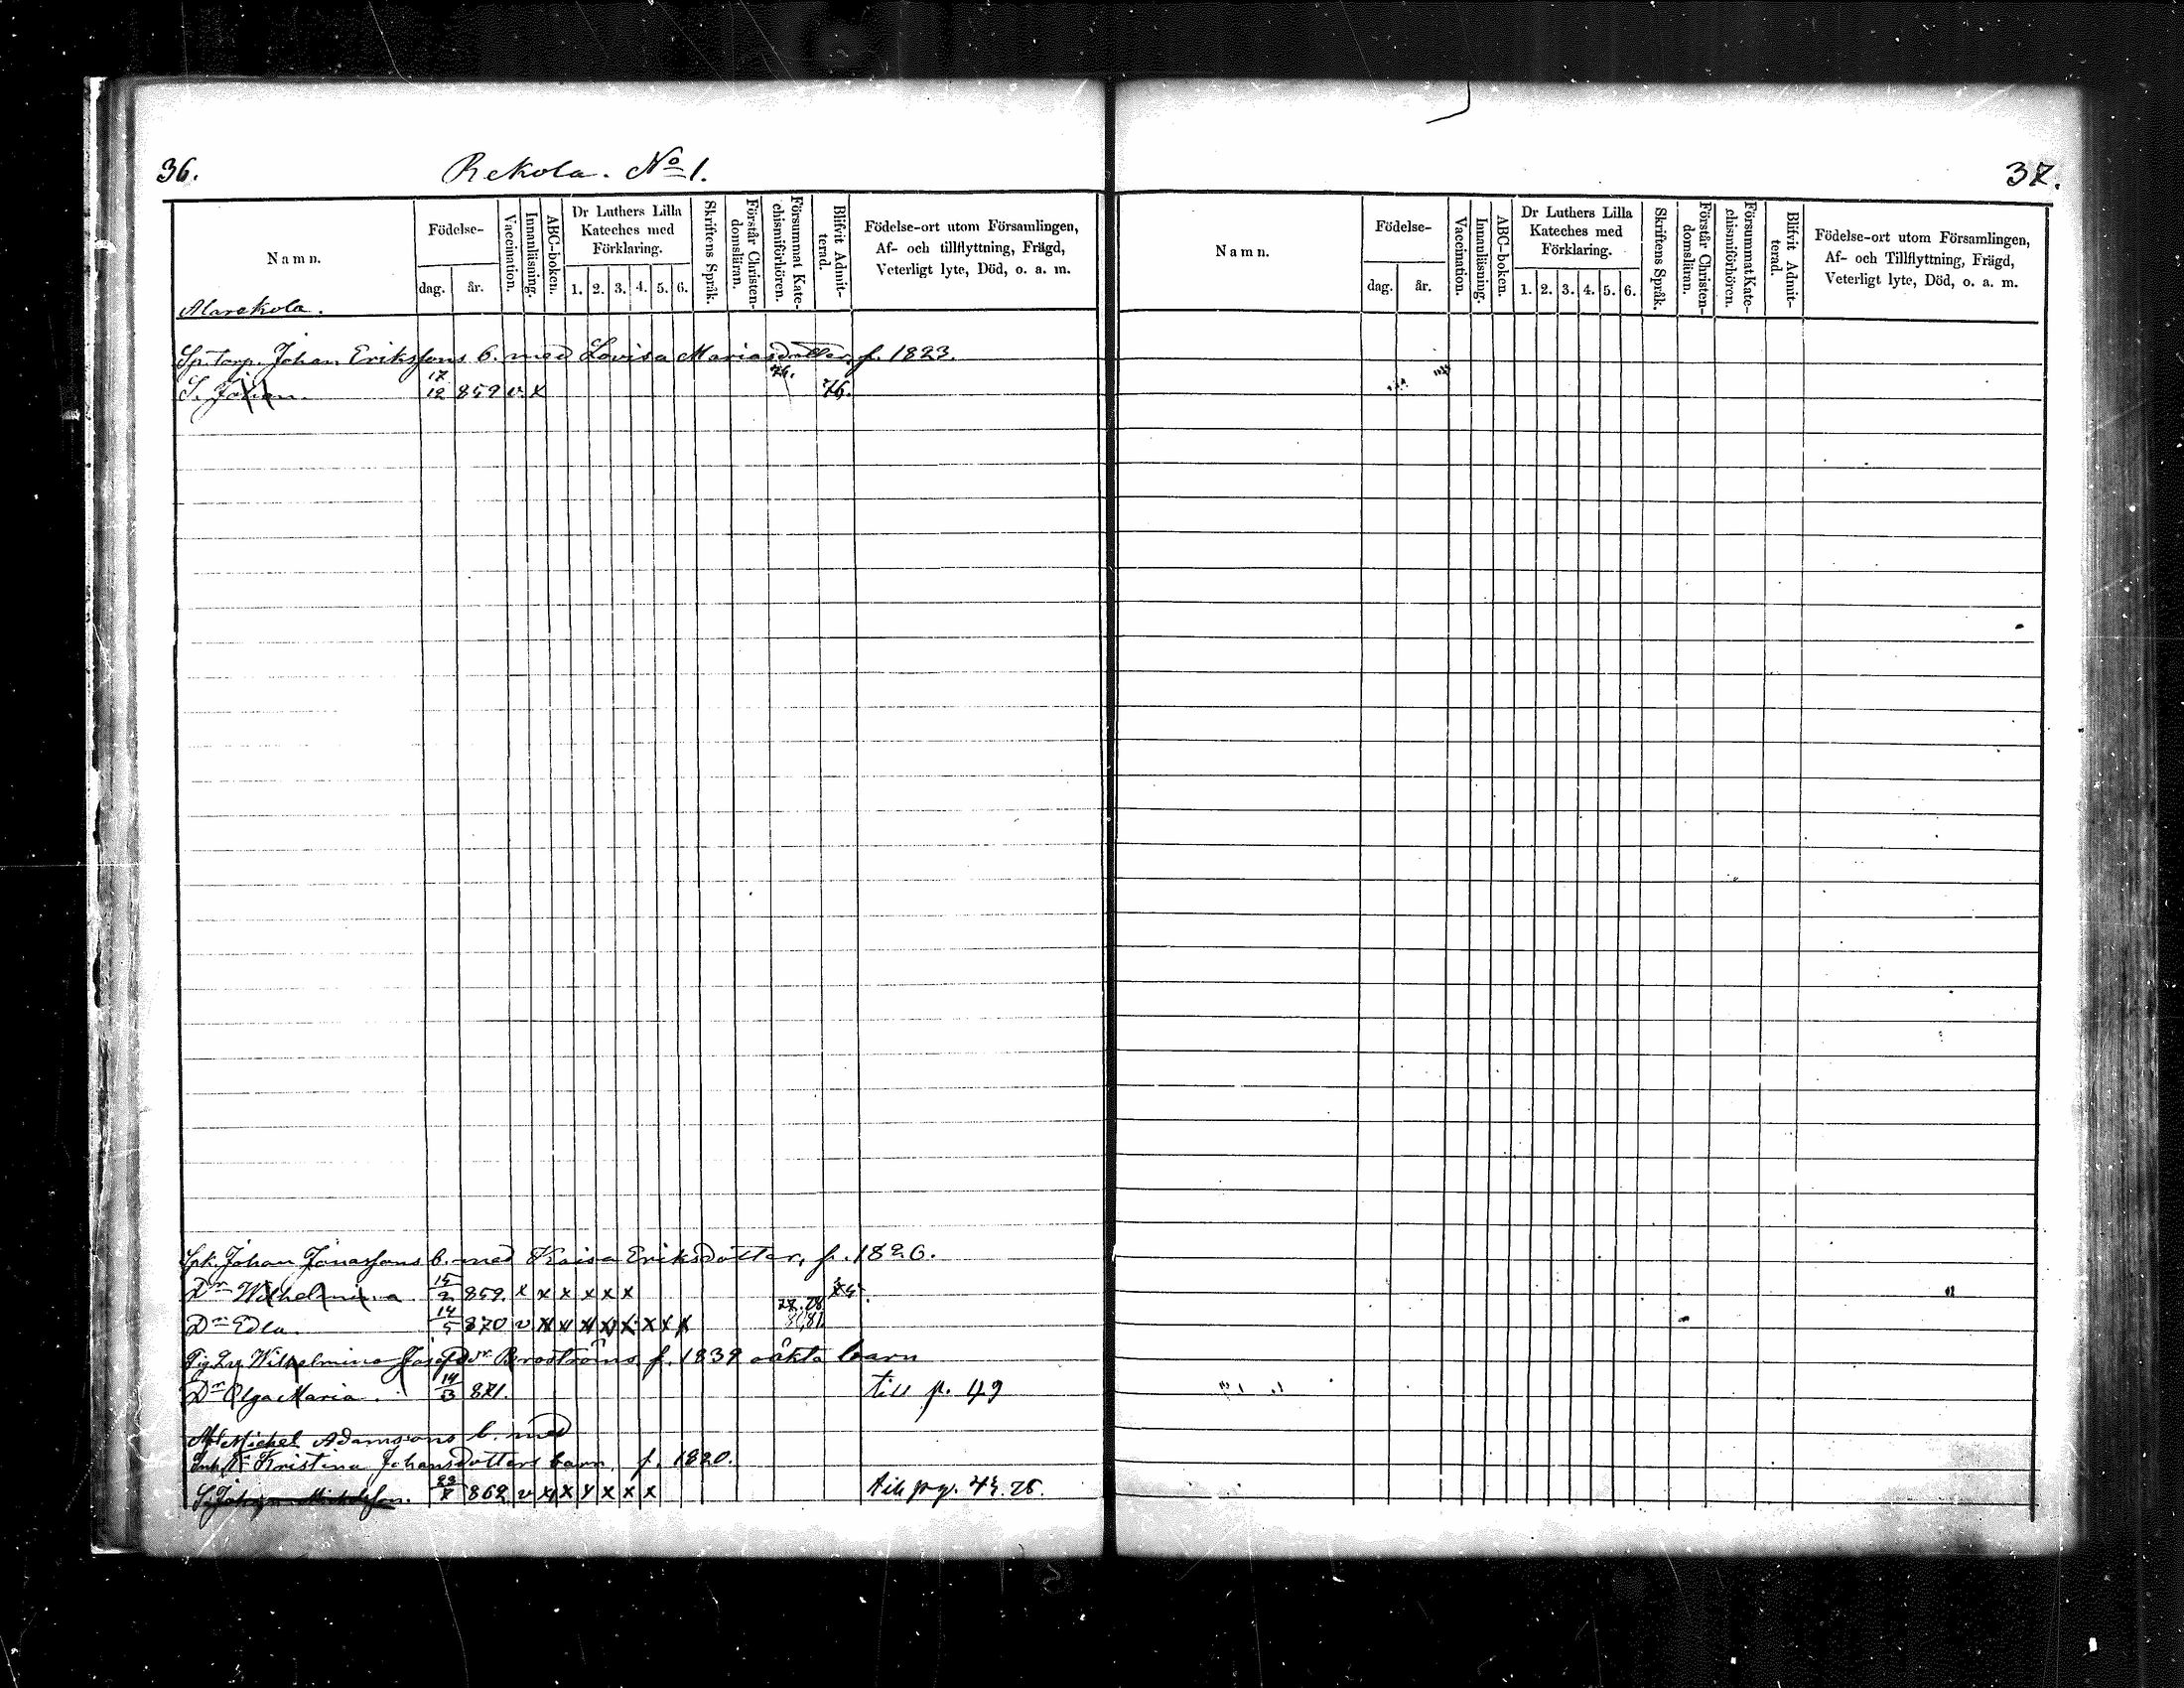 36. Rekola. No 1.
Namn.
Födelse-
dag. år.
Vaccination.
Innanläsning.
ABC-boken.
Dr Luthers Lilla Kateches med Förklaring.
1. 2. 3. 4. 5. 6.
Skriftens Språk.
Förstår Christen-domsläran.
Försummat Kate-chismiförhören.
Blifvit Admit-terad.
Födelse-ort utom Församlingen,
Af- och tillflyttning, Frägd,
Veterligt lyte, Död, o. a. m.
Alarekola.
Sp. torp. Johan Erikssons b. med Lovisa Mariasdotter, f. 1823.
S. Johan. 17/12 859 v. x 76. 76.
Spk. Johan Jonassons b. med Kaisa Eriksdotter, f. 1826.
Dr Wilhelmina 15/2 859. x x x x x x
Dr Edla. 14/5 870 v x x x x x x x x 80,81.
Wilhelmina f. 1839 oäkta barn
Dr Olga Maria. 14/3 871. till p. 49
Michel Adamsons b. med
Inh. Dr Kristina Johansdotters barn, f. 1820.
S. Johan 862 v x x x x x x till pg.
37.
Namn.
Födelse-
dag. år.
Vaccination.
Innanläsning.
ABC-boken.
Dr Luthers Lilla Kateches med Förklaring.
1. 2. 3. 4. 5. 6.
Skriftens Språk.
Förstår Christen-domsläran.
Försummat Kate-chismiförhören.
Blifvit Admit-terad.
Födelse-ort utom Församlingen,
Af- och Tillflyttning, Frägd,
Veterligt lyte, Död, o. a. m.